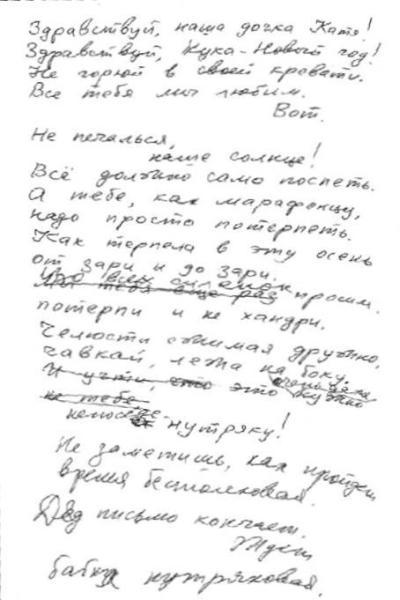 Здравствуй, наша дочка Катя!
Здравствуй, Кука-Новый год!
Не горюй в своей кровати.
Все тебя мы любим.
Вот.
Не печалься,
наше солнце!
Всё должно само поспеть.
А тебе, как марафонцу,
надо просто потерпеть.
Как терпела в эту осень
от зари и до зари.
Мы тебя еще раз просим.
потерпи и не хандри.
Челюсти сжимая дружно,
чавкай, лежа на боку.
И учти, что это нужно
не тебе
нутряку!
Не заметишь, как пройдет
время бестолковая.
Дед письмо кончает.
Ждет
бабка нутряковая.